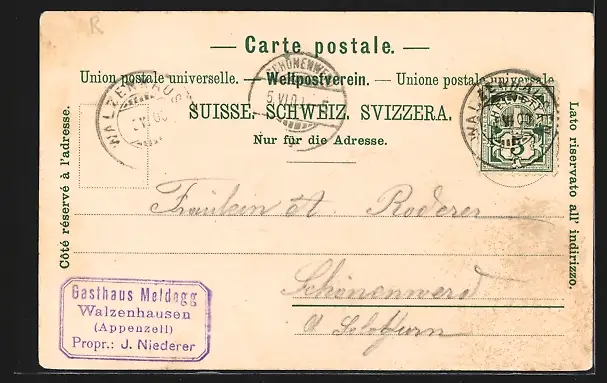 R
— Carte postale. —
Union postale universelle. — Weltpostverein. — Unione postale universale
SUISSE. SCHWEIZ. SVIZZERA.
Nur für die Adresse.
Côté réservé à l'adresse.
Lato riservato all' indirizzo.
WALZENHAUSEN
SCHÖNENWERD
5.VI.01
WALZENHAUSEN
5
Fräulein A. Roderer
Schönenwerd
Solothurn
Gasthaus Meldegg
Walzenhausen
(Appenzell)
Propr.: J. Niederer